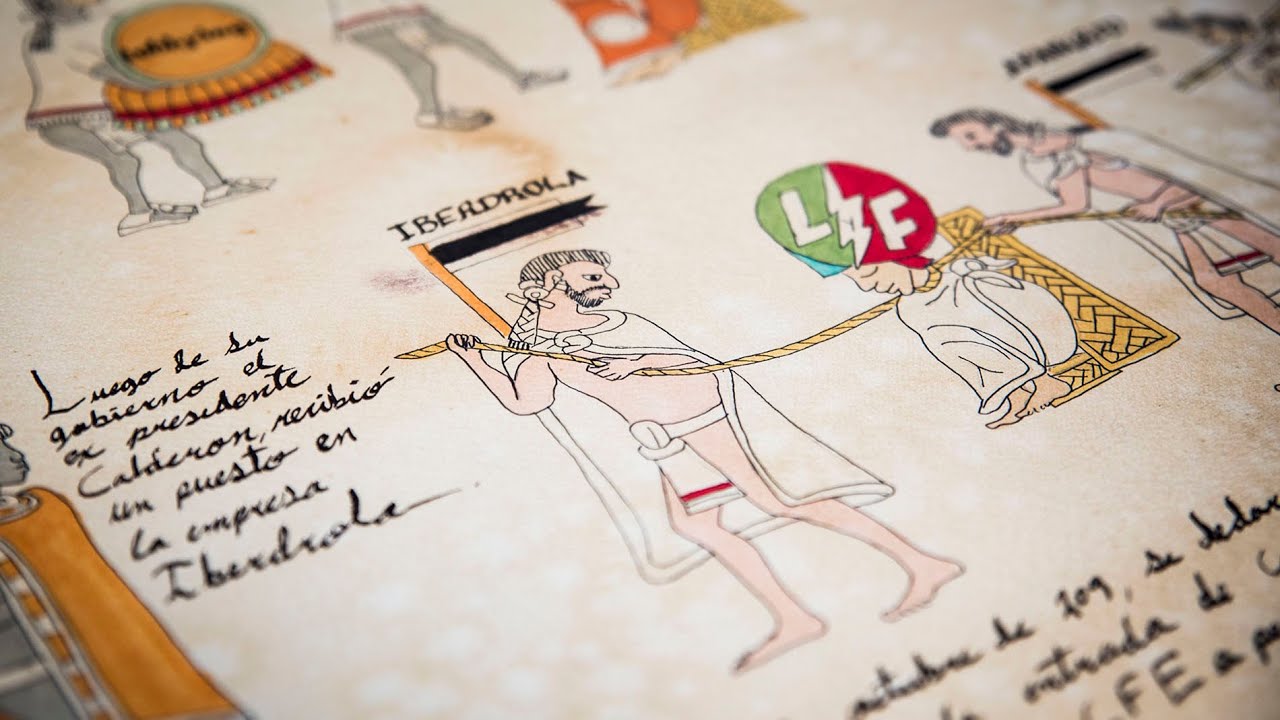 lobbying
IBERDROLA
L F
Luego de su
gobierno el
ex presidente
Calderon, recibió
un puesto en
la empresa
Iberdrola
octubre de 209, se
entrada de
CFE a